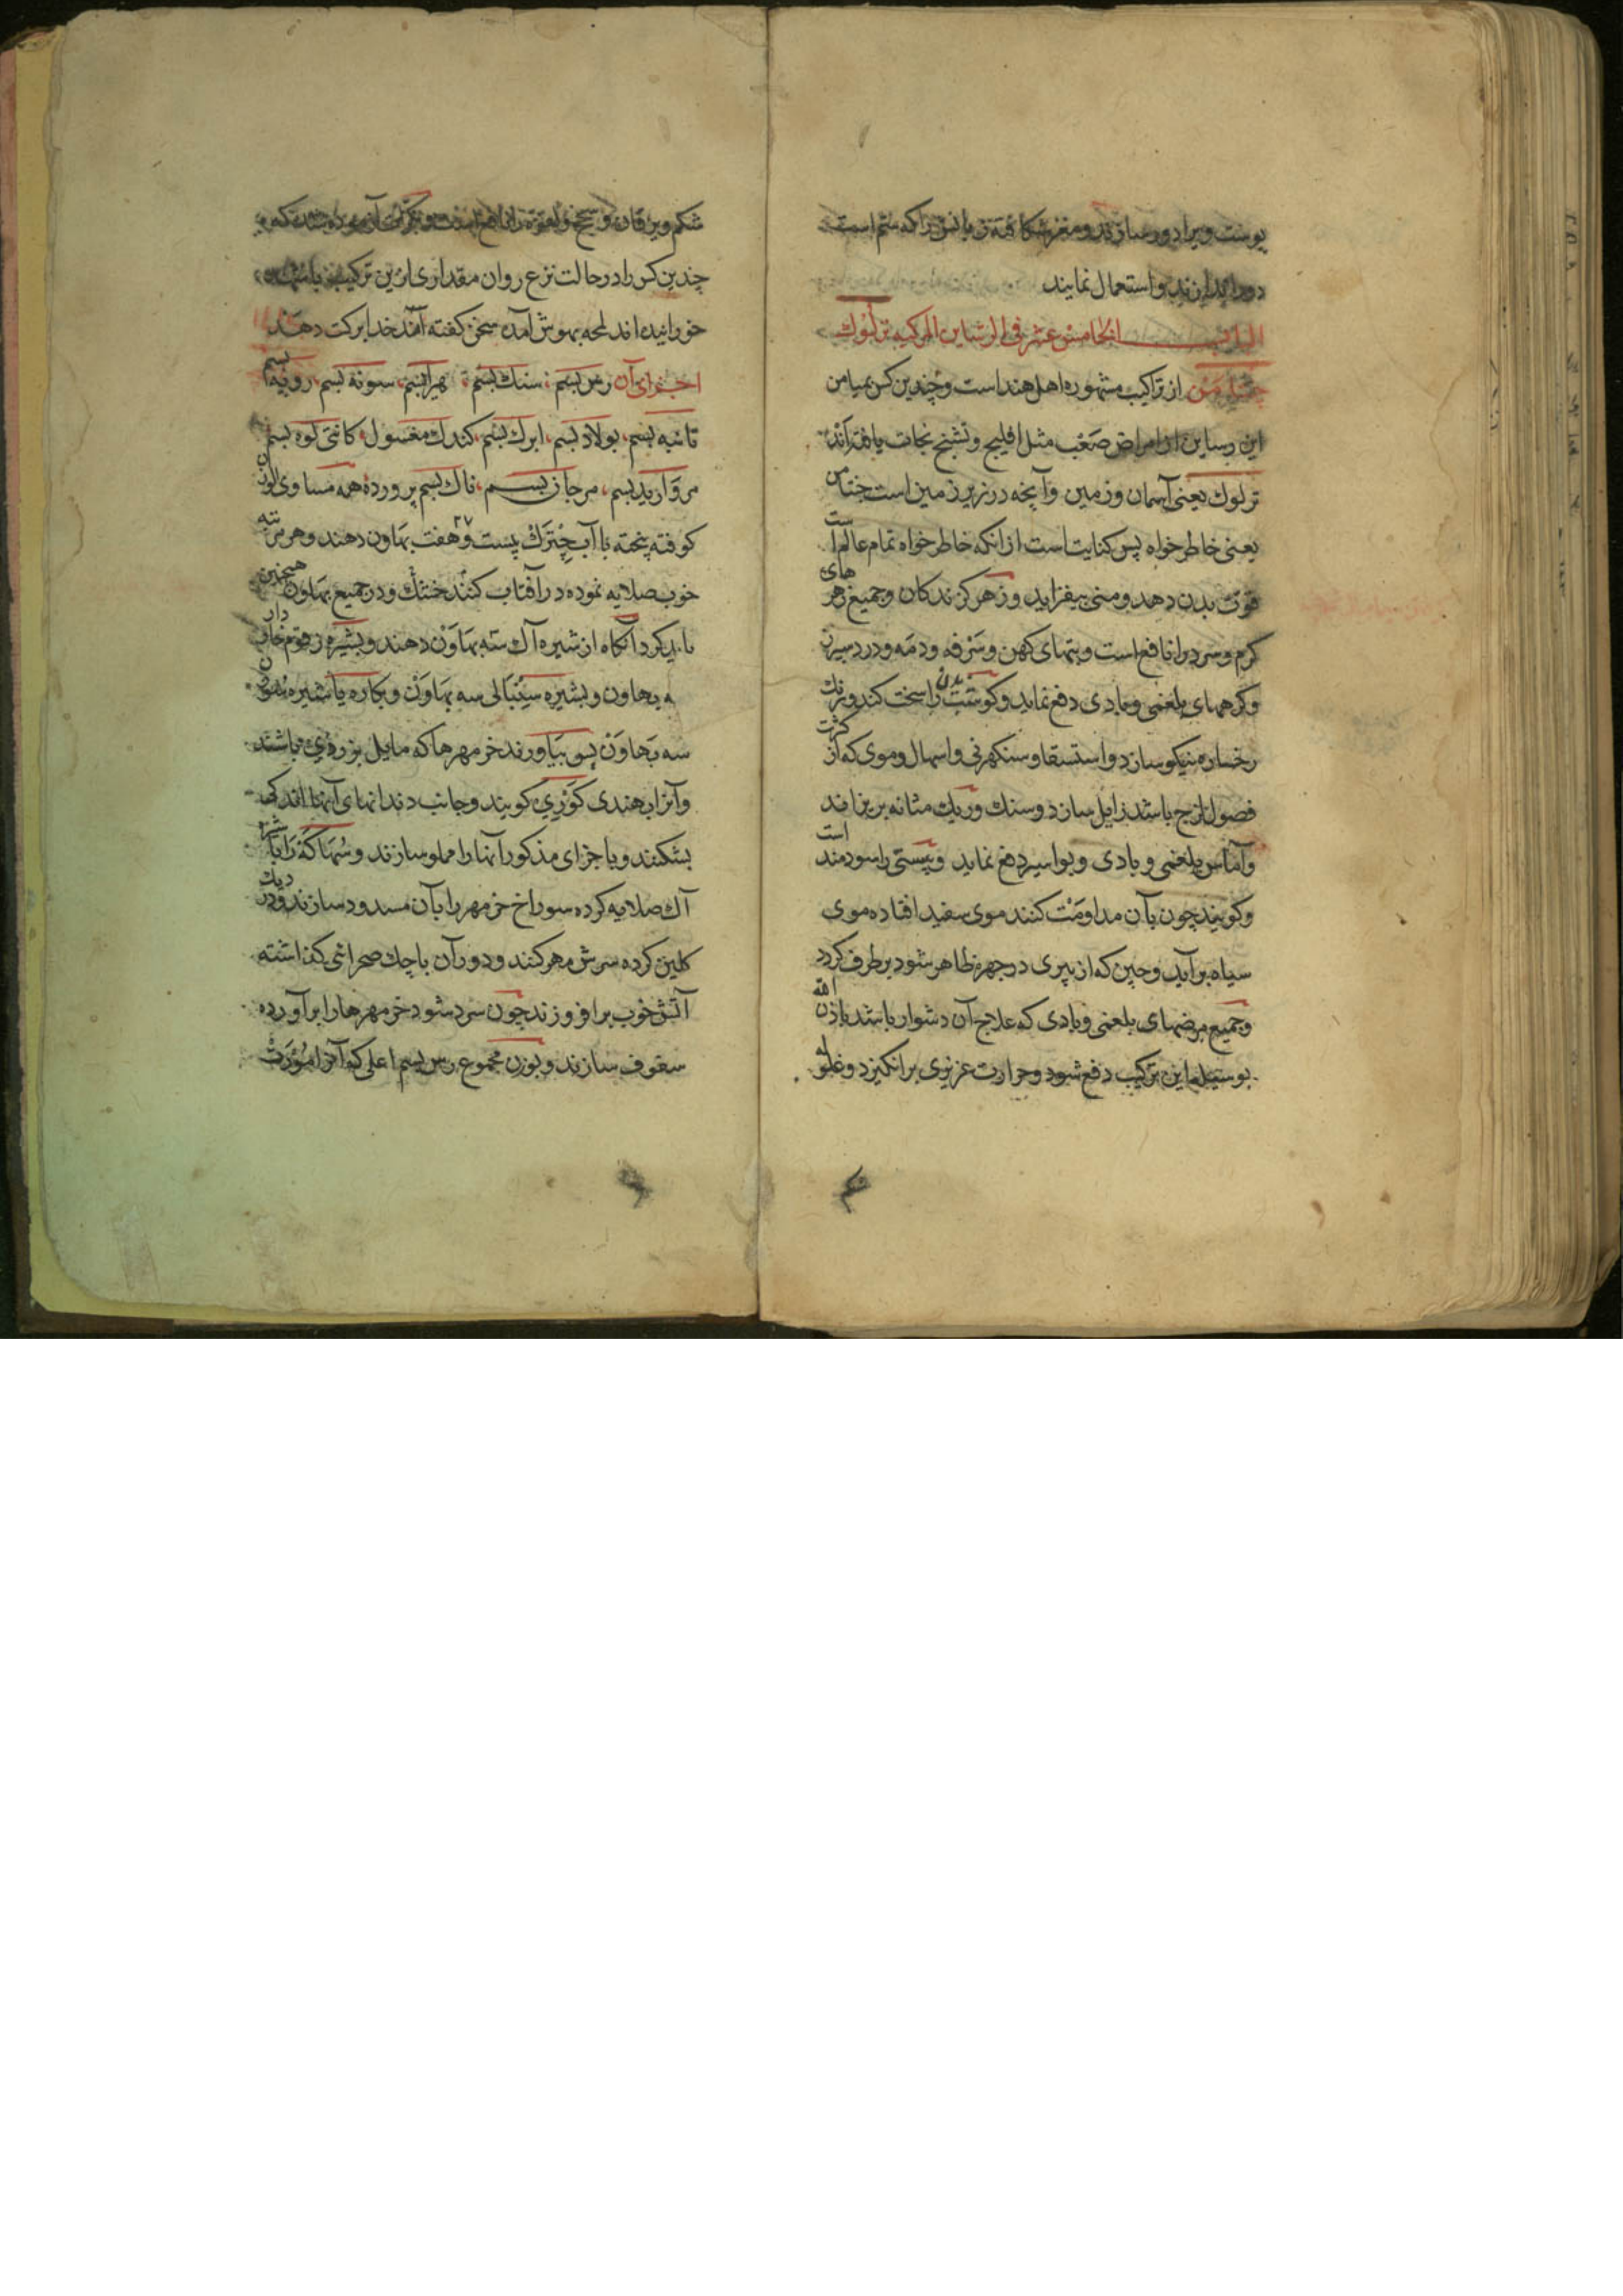 پوست ویرا دور سازند و مغزش کافته زبانش را که ستم است
دور اندازند و استعمال نمایند
الباب الخامس عشر فی الرساین المرکبه ترلوک
چنتامن از تراکیب مشهوره اهل هند است و چندین کس بمیامن
این رساین از امراض صعب مثل افلیج و تشنج نجات یافته‌اند
ترلوک یعنی آسمان و زمین و آنچه در زیر زمین است چنتامن
یعنی خاطر خواه پس کنایت است از انکه خاطر خواه تمام عالم است
قوت بدن دهد و منی بیفزاید و زهر کزندکان و جمیع زهرهای
کرم و سرد را نافع است و تبهای کهن و سرفه و دمه و درد سپرز
و کرمهای بلغمی و بادی دفع نماید و کوشت بدن را سخت کند و رنک
رخساره نیکو سازد و استسقا و سنکهرنی و اسهال و موی که از کثرت
فصول لزج باشد زایل سازد و سنک و ریک مثانه بریزاند
و آماس بلغمی و بادی و بواسیر دفع نماید و پیستی را سودمند است
و کویند چون بآن مداومت کنند موی سفید افتاده موی
سیاه برآید و چین که از پیری در چهره ظاهر شود برطرف کردد
و جمیع مرضهای بلغمی و بادی که علاج آن دشوار باشد باذن الله
بوسیله این ترکیب دفع شود و حرارت عزیزی برانکیزد و غلوله
شکم و یرقان و
چندین کس را در حالت نزع روان مقداری ازین ترکیب
خورانیده اند لمحه بهوش آمده سخن کفته آمد خدا برکت دهد
اجزای آن رس بسم سنک بسم هیرا بسم سونه بسم روپه بسم
تانبه بسم پولاد بسم ابرک بسم کندک مغسول کانتی لوه بسم
مروارید بسم مرجان بسم ناک بسم پرورده همه مساوی الوزن
کوفته پخته با آب چترک بیست و هفت ۲۷ بهاون دهند و هر مرتبه
خوب صلایه نموده در آفتاب کنند خشک و در جمیع بهاون همچنین
باید کرد آنکاه از شیره آک سه بهاون دهند و بشیره زقوم خاردار
سه بهاون و بشیره سینبالی سه بهاون و بکاره یا شیره
سه بهاون پس بیاورند خرمهرها که مایل بزردی باشند
و آنرا بهندی کوری کویند و جانب دندانهای آنها اندکی
بشکنند و با جزای مذکور آنها را مملو سازند و سهاکه را با شیر
آک صلایه کرده سوراخ خرمهر را بآن مسدود سازند و در دیک
کلین کرده سرش مهر کنند و دور آن پاچک صحرائی کذاشته
آتش خوب برافروزند چون سرد شود خرمهرها را برآورده
سفوف سازند و بوزن مجموع رس بسم اعلی که آنرا مورت